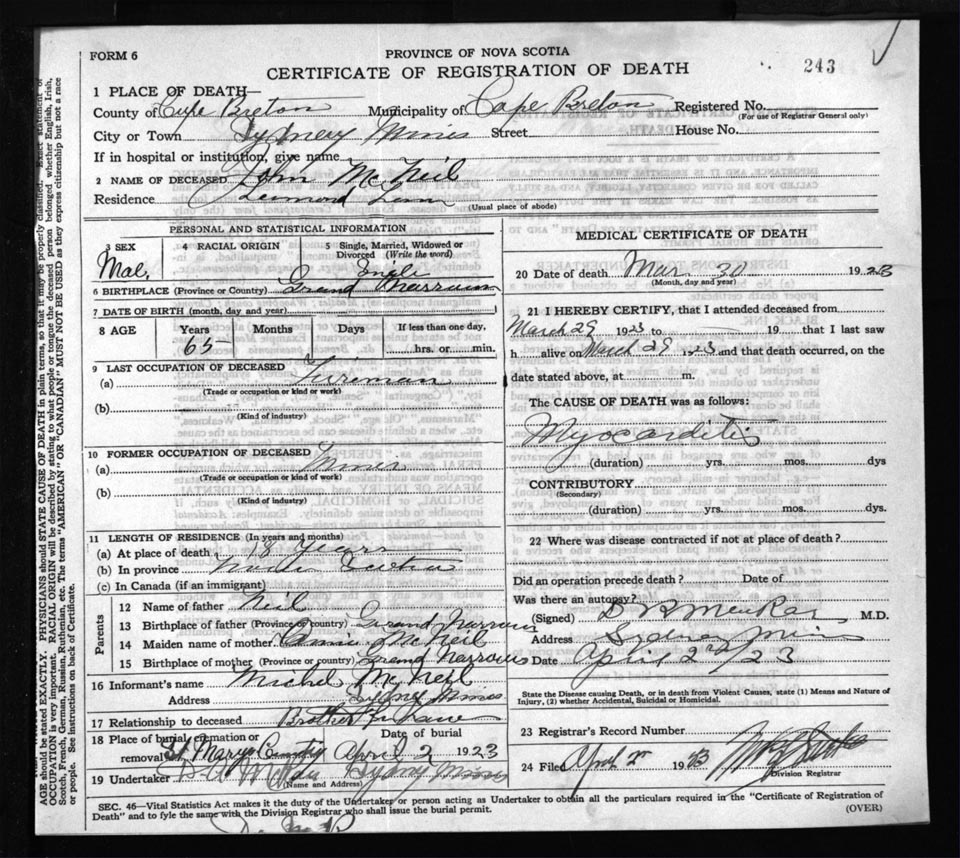 FORM 6
PROVINCE OF NOVA SCOTIA
CERTIFICATE OF REGISTRATION OF DEATH
243
1 PLACE OF DEATH—
County of Cape Breton Municipality of Cape Breton Registered No.
(For use of Registrar General only)
City or Town Sydney Mines Street House No.
If in hospital or institution, give name
2 NAME OF DECEASED John McNeil
Residence
(Usual place of abode)
PERSONAL AND STATISTICAL INFORMATION
3 SEX
Male
4 RACIAL ORIGIN
5 Single, Married, Widowed or Divorced (Write the word)
Single
6 BIRTHPLACE (Province or Country) Grand Narrows
7 DATE OF BIRTH (month, day and year)
8 AGE Years Months Days If less than one day,
65 hrs. or min.
9 LAST OCCUPATION OF DECEASED
(a) Fireman
(Trade or occupation or kind or work)
(b)
(Kind of industry)
10 FORMER OCCUPATION OF DECEASED
(a) Miner
(Trade or occupation or kind or work)
(b)
(Kind of industry)
11 LENGTH OF RESIDENCE (In years and months)
(a) At place of death 18 Years
(b) In province Nova Scotia
(c) In Canada (if an immigrant)
Parents
12 Name of father Neil
13 Birthplace of father (Province or country) Grand Narrows
14 Maiden name of mother Annie McNeil
15 Birthplace of mother (Province or country) Grand Narrows
16 Informant's name Michel McNeil
Address Sydney Mines
17 Relationship to deceased Brother in Law
18 Place of burial, cremation or removal Date of burial
St Marys Cemetery April 2 1923
19 Undertaker Sydney Mines
(Name and Address)
MEDICAL CERTIFICATE OF DEATH
20 Date of death Mar 30 1923
(Month, day and year)
21 I HEREBY CERTIFY, that I attended deceased from
March 29 1923 to 19 that I last saw
h alive on March 29 1923 and that death occurred, on the
date stated above, at m.
The CAUSE OF DEATH was as follows:
Myocarditis
(duration) yrs. mos. dys
CONTRIBUTORY
(Secondary)
(duration) yrs. mos. dys.
22 Where was disease contracted if not at place of death?
Did an operation precede death? Date of
Was there an autopsy?
(Signed) M.D.
Address Sydney Mines
Date April 2nd/23
State the Disease causing Death, or in death from Violent Causes, state (1) Means and Nature of
Injury, (2) whether Accidental, Suicidal or Homicidal.
23 Registrar's Record Number
24 Filed April 2 1923
Division Registrar
SEC. 46—Vital Statistics Act makes it the duty of the Undertaker or person acting as Undertaker to obtain all the particulars required in the "Certificate of Registration of
Death" and to fyle the same with the Division Registrar who shall issue the burial permit.
(OVER)
AGE should be stated EXACTLY. PHYSICIANS should STATE CAUSE OF DEATH in plain terms, so that it may be properly classified. Exact statement of
OCCUPATION is very important. RACIAL ORIGIN will be described by stating to what people or tongue the deceased person belonged whether English, Irish,
Scotch, French, German, Russian, Ruthenian, etc. The terms "AMERICAN" OR "CANADIAN" MUST NOT BE USED as they express citizenship but not a race
or people. See instructions on back of Certificate.